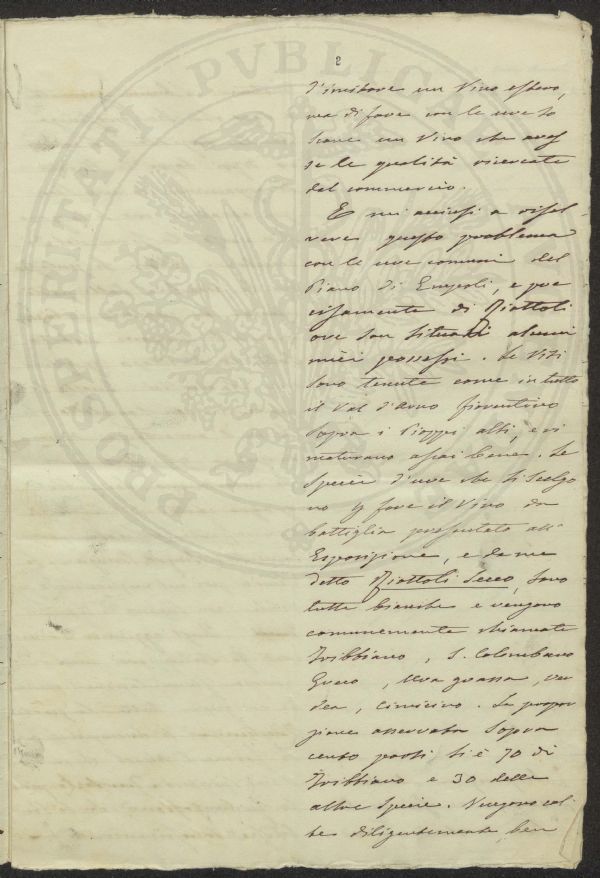 2
d'imitare un Vino estero,
ma di fare con le uve to
scane un Vino che aves
se le qualità ricercate
dal commercio.
E mi accinsi a risol
vere questo problema
con le uve comuni del
Piano di Empoli, e pre
cisamente di Riottoli
ove son situati alcuni
miei possessi. Le Viti
sono tenute come in tutto
il Val d'Arno fiorentino
sopra i Pioppi alti, e vi
maturano assai bene. Le
specie d'uve che si scelgo
no p fare il Vino da
bottiglia presentato all'
Esposizione, e da me
detto Riottoli Secco, sono
tutte bianche e vengono
comunemente chiamate
Tribbiano, S. Colombano
Greco, Uva grassa, ver
dea, cimicino. La propor
zione osservata sopra
cento parti si è 70 di
Tribbiano e 30 delle
altre specie. Vengono col
te diligentemente, ben
PROSPERITATI PVBLICAE